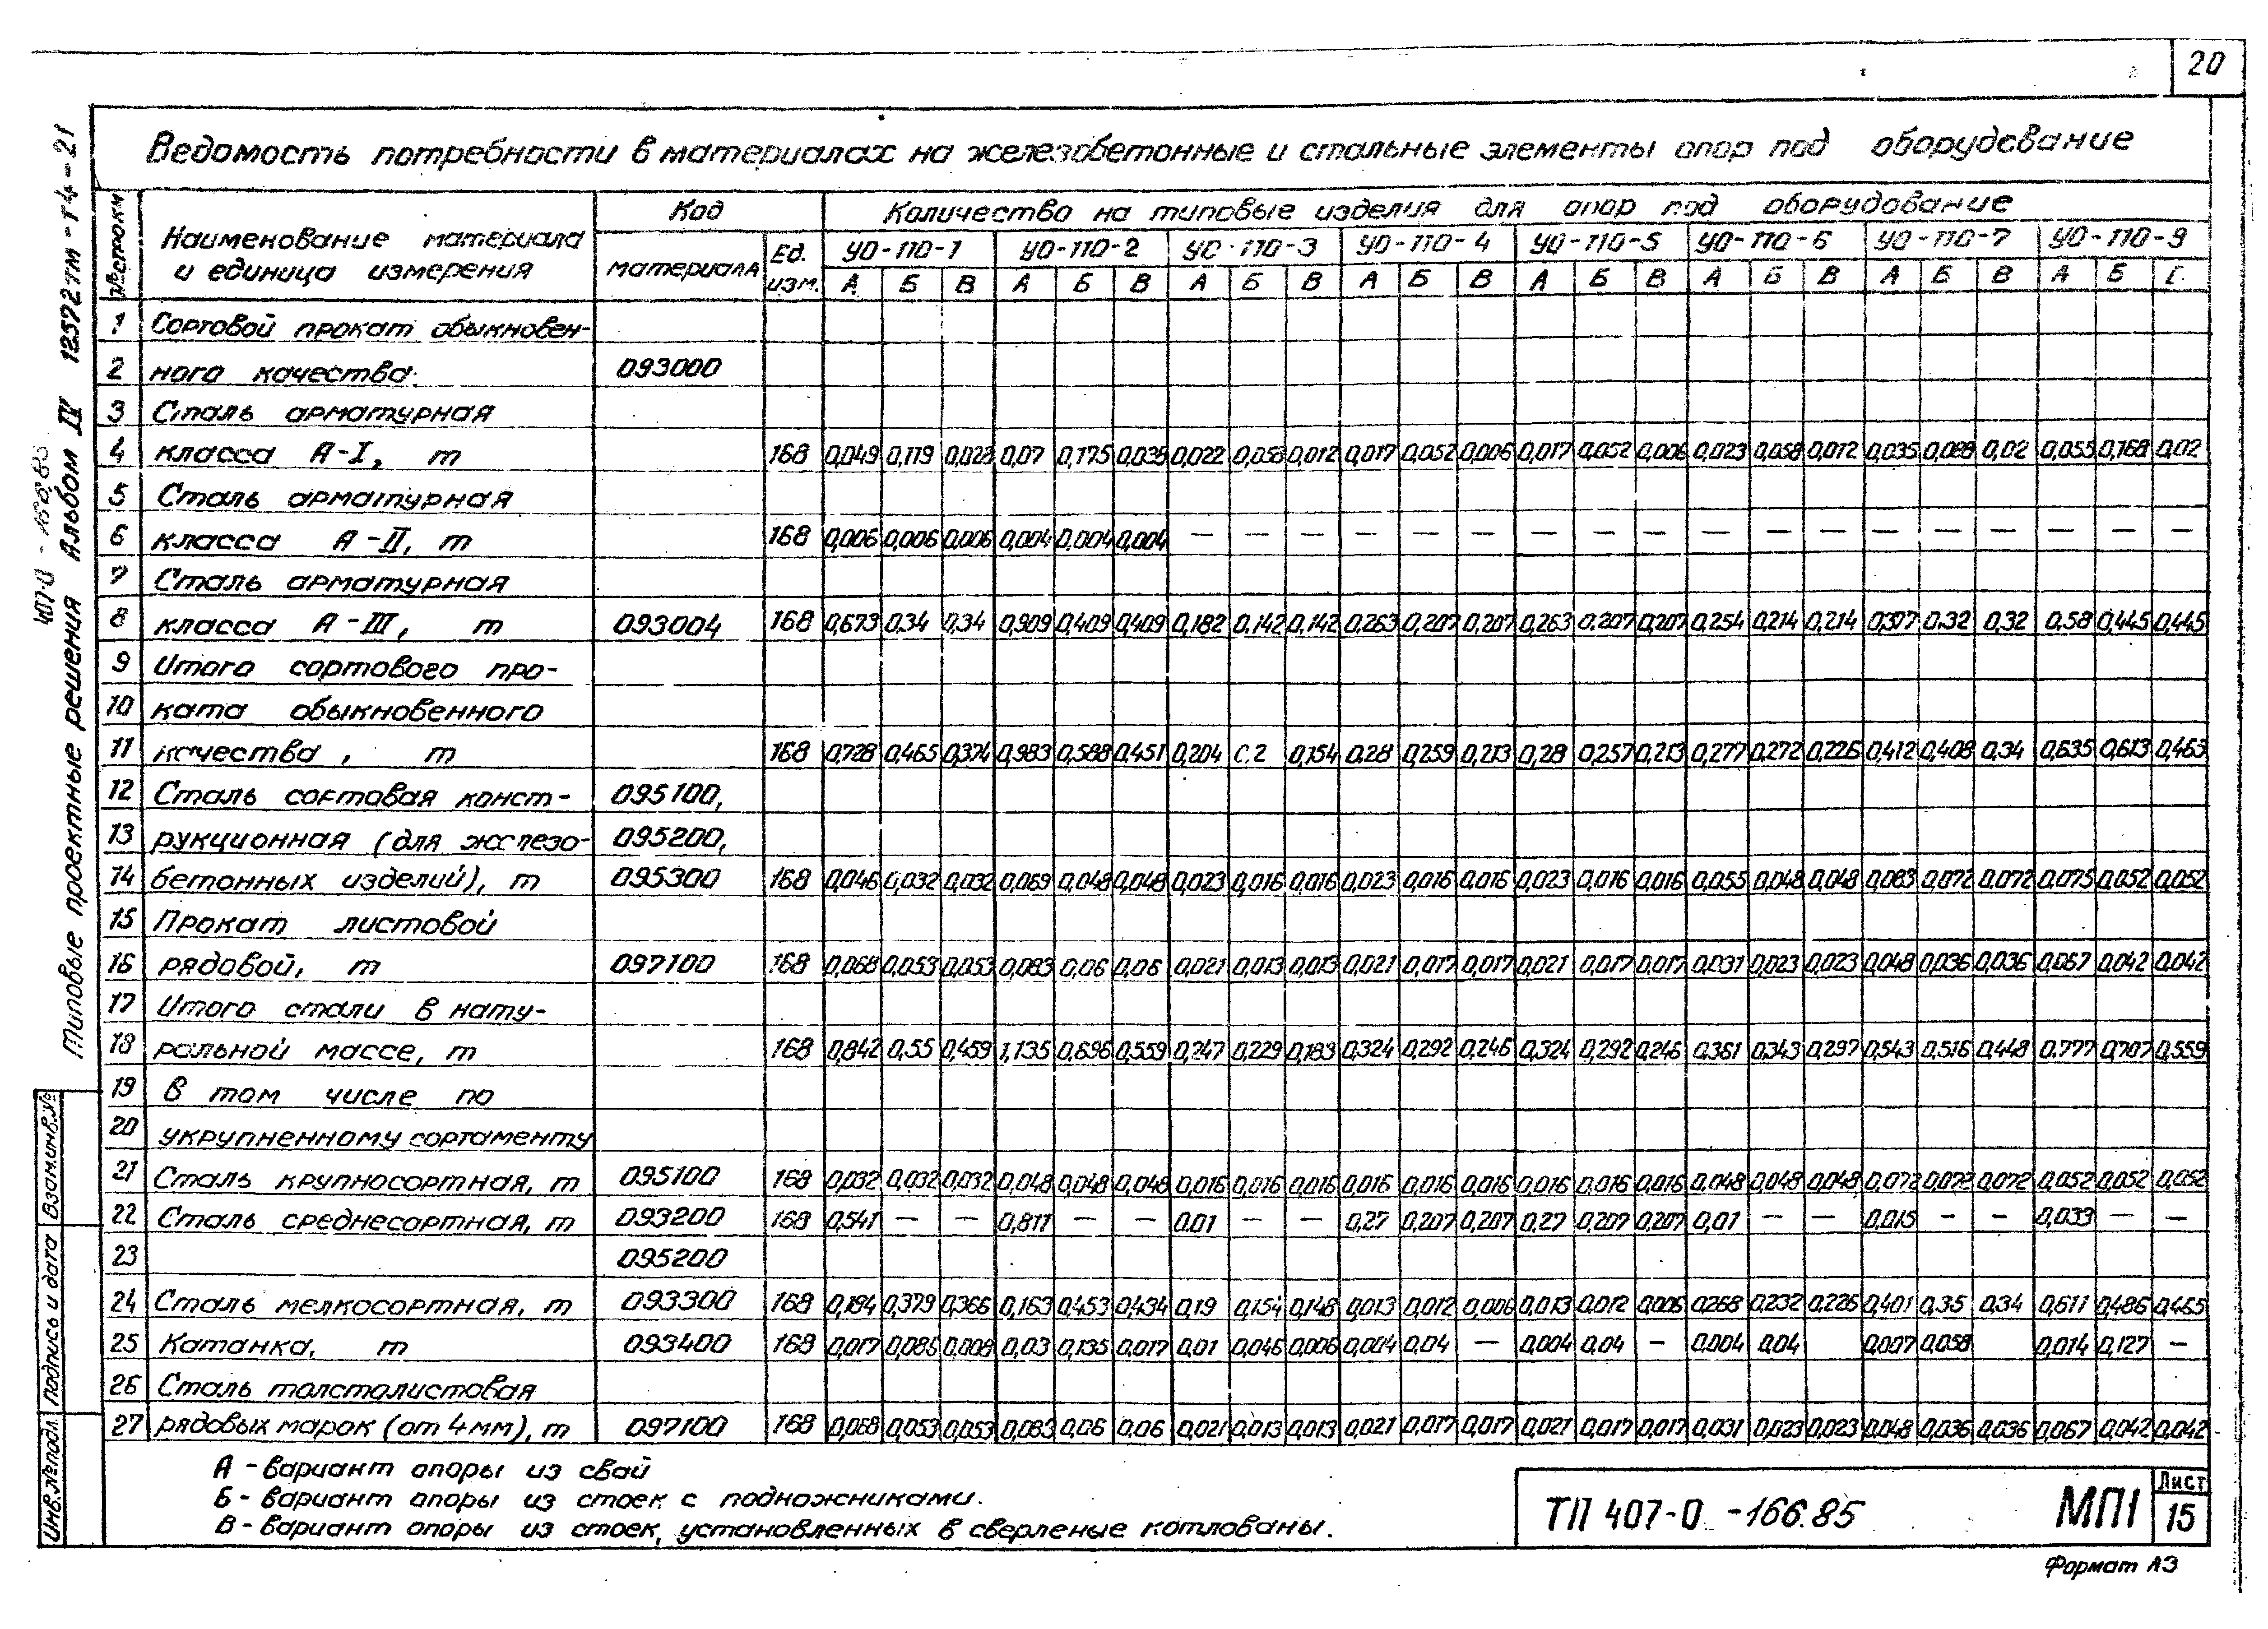 20
Ведомость потребности в материалах на железобетонные и стальные элементы опор под оборудование
№ строки Наименование материала и единица измерения Код материала Ед. изм. Количество на типовые изделия для опор под оборудование
УО-110-1 УО-110-2 УО-110-3 УО-110-4 УО-110-5 УО-110-6 УО-110-7 УО-110-9
А Б В А Б В А Б В А Б В А Б В А Б В А Б В А Б
1 Сортовой прокат обыкновен-
2 ного качества. 093000
3 Сталь арматурная
4 класса А-I, т 168 0,049 0,119 0,028 0,07 0,175 0,038 0,022 0,058 0,012 0,017 0,052 0,006 0,017 0,052 0,006 0,023 0,058 0,012 0,035 0,088 0,02 0,055 0,168 0,02
5 Сталь арматурная
6 класса А-II, т 168 0,006 0,006 0,006 0,004 0,004 0,004 — — — — — — — — — — — — — — — — — —
7 Сталь арматурная
8 класса А-III, т 093004 168 0,673 0,34 0,34 0,909 0,409 0,409 0,182 0,142 0,142 0,263 0,207 0,207 0,263 0,207 0,207 0,254 0,214 0,214 0,377 0,32 0,32 0,58 0,445 0,445
9 Итого сортового про-
10 ката обыкновенного
11 качества, т 168 0,728 0,465 0,374 0,983 0,588 0,451 0,204 0,2 0,154 0,28 0,259 0,213 0,28 0,257 0,213 0,277 0,272 0,226 0,412 0,408 0,34 0,635 0,613 0,463
12 Сталь сортовая конст- 095100,
13 рукционная (для железо- 095200,
14 бетонных изделий), т 095300 168 0,046 0,032 0,032 0,069 0,048 0,048 0,023 0,016 0,016 0,023 0,016 0,016 0,023 0,016 0,016 0,055 0,048 0,048 0,083 0,072 0,072 0,075 0,052 0,052
15 Прокат листовой
16 рядовой, т 097100 168 0,068 0,053 0,053 0,083 0,06 0,06 0,021 0,013 0,013 0,021 0,017 0,017 0,021 0,017 0,017 0,031 0,023 0,023 0,048 0,036 0,036 0,067 0,042 0,042
17 Итого стали в нату-
18 ральной массе, т 168 0,842 0,55 0,459 1,135 0,696 0,559 0,247 0,229 0,183 0,324 0,292 0,246 0,324 0,292 0,246 0,361 0,343 0,297 0,543 0,516 0,448 0,777 0,707 0,559
19 В том числе по
20 укрупненному сортаменту
21 Сталь крупносортная, т 095100 168 0,032 0,032 0,032 0,048 0,048 0,048 0,016 0,016 0,016 0,016 0,016 0,016 0,016 0,016 0,016 0,048 0,048 0,048 0,072 0,072 0,072 0,052 0,052 0,052
22 Сталь среднесортная, т 093200 168 0,541 — — 0,811 — — 0,01 — — 0,27 0,207 0,207 0,27 0,207 0,207 0,01 — — 0,015 — — 0,033 — —
23 095200
24 Сталь мелкосортная, т 093300 168 0,184 0,379 0,366 0,163 0,453 0,434 0,19 0,154 0,148 0,013 0,012 0,006 0,013 0,012 0,006 0,268 0,232 0,226 0,401 0,35 0,34 0,611 0,486 0,465
25 Катанка, т 093400 168 0,017 0,086 0,008 0,03 0,135 0,017 0,01 0,046 0,006 0,004 0,04 — 0,004 0,04 — 0,004 0,04 0,007 0,058 0,014 0,127 —
26 Сталь толстолистовая
27 рядовых марок (от 4 мм), т 097100 168 0,068 0,053 0,053 0,083 0,06 0,06 0,021 0,013 0,013 0,021 0,017 0,017 0,021 0,017 0,017 0,031 0,023 0,023 0,048 0,036 0,036 0,067 0,042 0,042
А - вариант опоры из свай
Б - вариант опоры из стоек с подножниками.
В - вариант опоры из стоек, установленных в сверленые котлованы.
ТП 407-0-166.85 МП1 Лист 15
Формат А3
Типовые проектные решения Альбом IV 12572тм-т4-21
407-0-166.85
Взам.инв.№
Подпись и дата
Инв.№ подл.